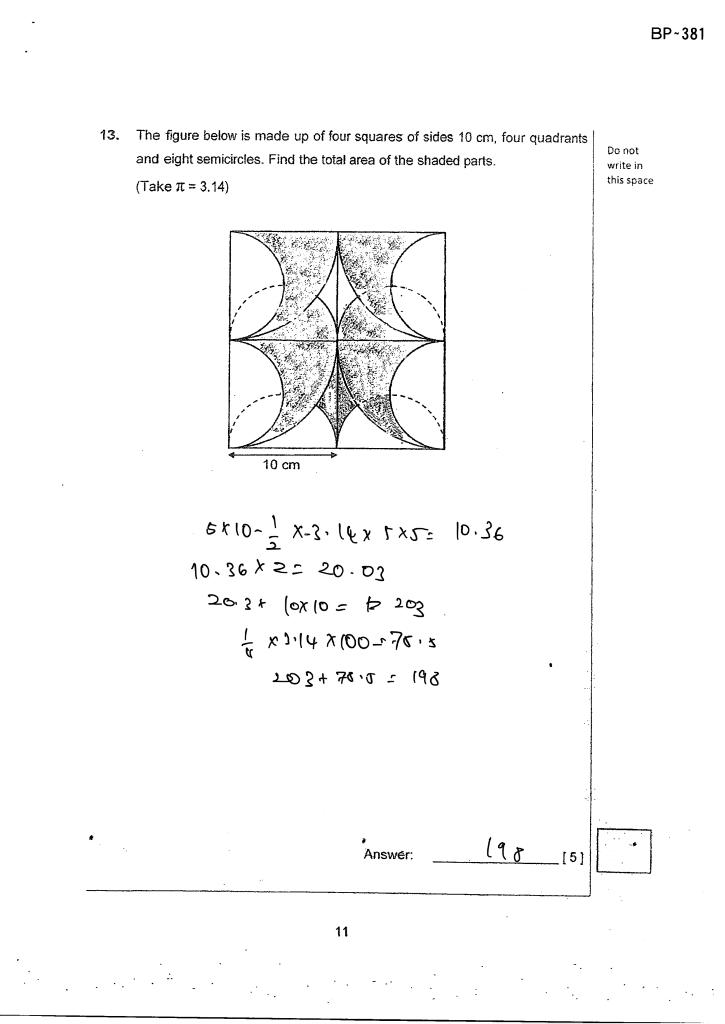 BP-381
13. The figure below is made up of four squares of sides 10 cm, four quadrants
and eight semicircles. Find the total area of the shaded parts.
(Take π = 3.14)
Do not
write in
this space
10 cm
5×10-1/2 ×3.14× 5×5= 10.36
10.36×2= 20.03
20.3+ 10×10= 203
×3.14×100=78.5
203+78.5 = 198
Answer: 198 [5]
11